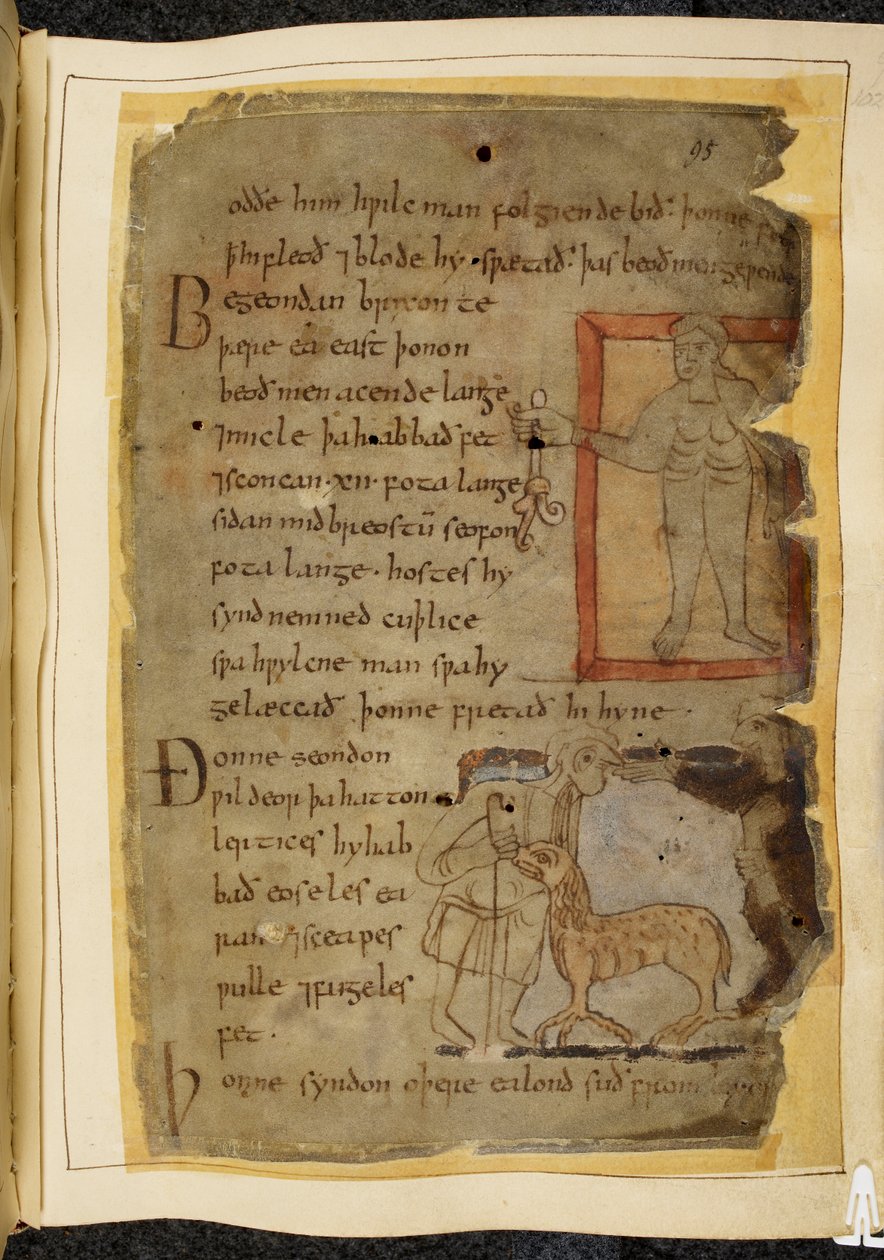 95
oððe him hƿilc man folgiende bið: þonne feor
þ hi fleoð ⁊ blode hy · spætað: þas beoð men gewende
Begeondan brixonte
þære ea east þonon
beoð men acende lange
⁊ micle þa habbað fet
⁊ sconcan · xii · fota lange
sidan mid breostū seofon
fota lange · hostes hy
synd nemned cuþlice
sƿa hƿylcne man sƿa hy
gelæccað þonne fretað hi hyne ·
Ðonne seondon
ƿildeor þa hatton
lertices hy hab
bað eoseles ea
ran ⁊ sceapes
ƿulle ⁊ fugeles
fet ·
Þonne syndon oþere ealond suð from